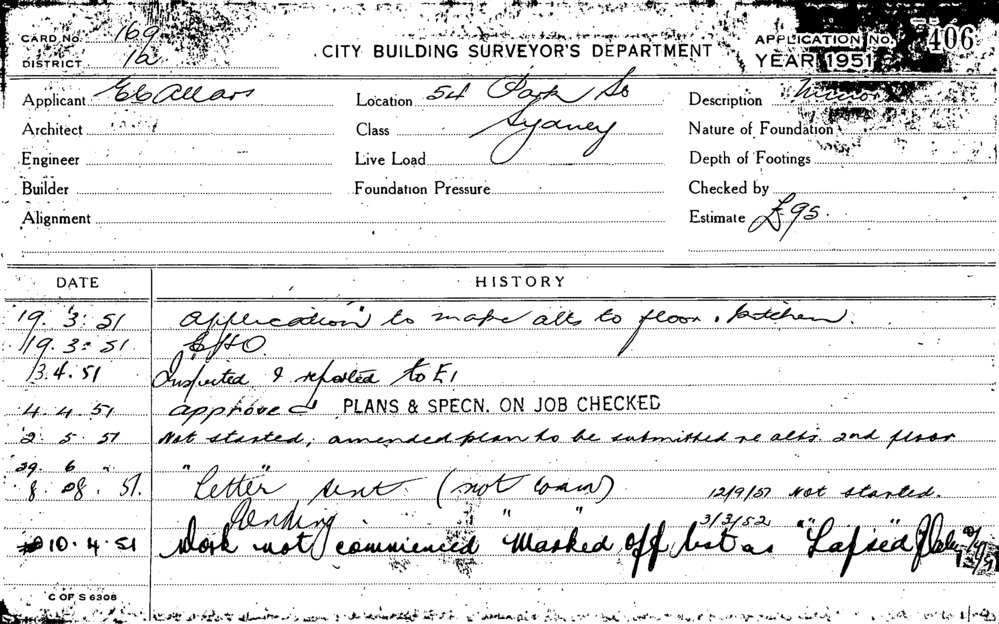 CARD No. 169
DISTRICT 1a
CITY BUILDING SURVEYOR'S DEPARTMENT
APPLICATION No. 406
YEAR 1951
Applicant
Location 54 Park St
Sydney
Description
Architect
Class
Nature of Foundation
Engineer
Live Load
Depth of Footings
Builder
Foundation Pressure
Checked by
Alignment
Estimate £95.
DATE HISTORY
19. 3. 51 Application to make alts to floor. kitchen.
19. 3. 51
3. 4. 51 Inspected & reported to E1
4. 4. 51 approved PLANS & SPECN. ON JOB CHECKED
2. 5. 51 Not started, amended plan to be submitted re alts. 2nd floor
29 6 "
8. 8. 51. "Letter" sent (not comm) 12/9/51 Not started.
Pending " " 3/3/52
10. 4. 51 Work not commenced Marked off list as "Lapsed"
C OF S 6308